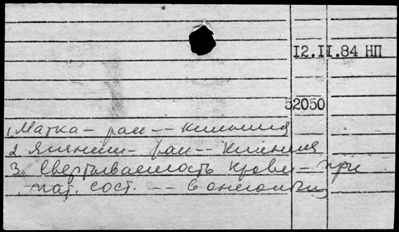 12.II.84 НП
52050
1. Матка – рак – – клиника
2 Яичники – рак – – клиника
3. Свертываемость крови – при
пат. сост. – – в онкологии